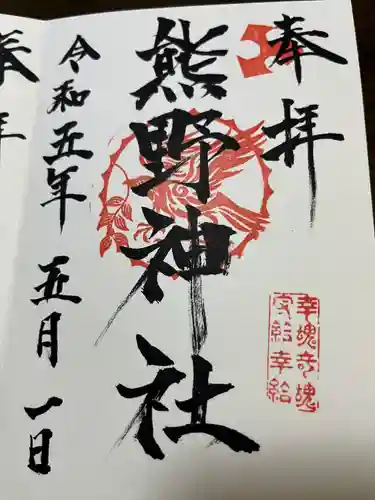 奉拝
熊野神社
令和五年五月一日
幸魂奇魂
守給幸給